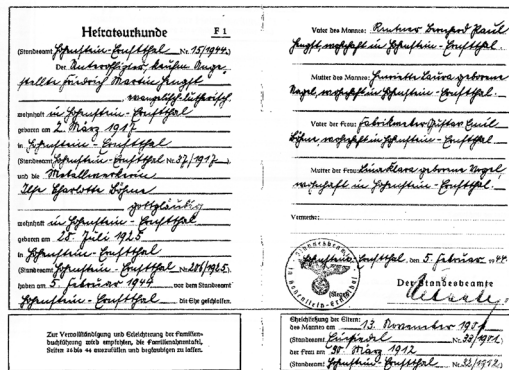 Heiratsurkunde F 1
(Standesamt Hohenstein-Ernstthal Nr. 15/1944)
Der
Friedrich Martin
, evangelisch-lutherisch
wohnhaft in Hohenstein-Ernstthal
geboren am 2. März 1917
in Hohenstein-Ernstthal
(Standesamt Hohenstein-Ernstthal Nr. 37/1917)
und die Metallwerkerin
Ilse Charlotte Böhme
gottgläubig
wohnhaft in Hohenstein-Ernstthal
geboren am 25. Juli 1925
in Hohenstein-Ernstthal
(Standesamt Hohenstein-Ernstthal Nr. /1925)
haben am 5. Februar 1944 vor dem Standesamt
Hohenstein-Ernstthal die Ehe geschlossen.
Zur Vervollständigung und Erleichterung der Familien-
buchführung wird empfohlen, die Familienahnentafel,
Seiten bis 44 auszufüllen und beglaubigen zu lassen.
Vater des Mannes: Rentner Bernhard Paul
wohnhaft in Hohenstein-Ernstthal.
Mutter des Mannes: Henriette Laura geborene
Nagel, wohnhaft in Hohenstein-Ernstthal.
Vater der Frau: Gustav Emil
Böhme, wohnhaft in Hohenstein-Ernstthal.
Mutter der Frau: Klara geborene Vogel,
wohnhaft in Hohenstein-Ernstthal.
Vermerke:
Hohenstein-Ernstthal, den 5. Februar 1944.
Der Standesbeamte
Eheschließung der Eltern:
des Mannes am 13. November
(Standesamt Nr. )
der Frau am 30. März 1912
(Standesamt Hohenstein-Ernstthal Nr. /1912)